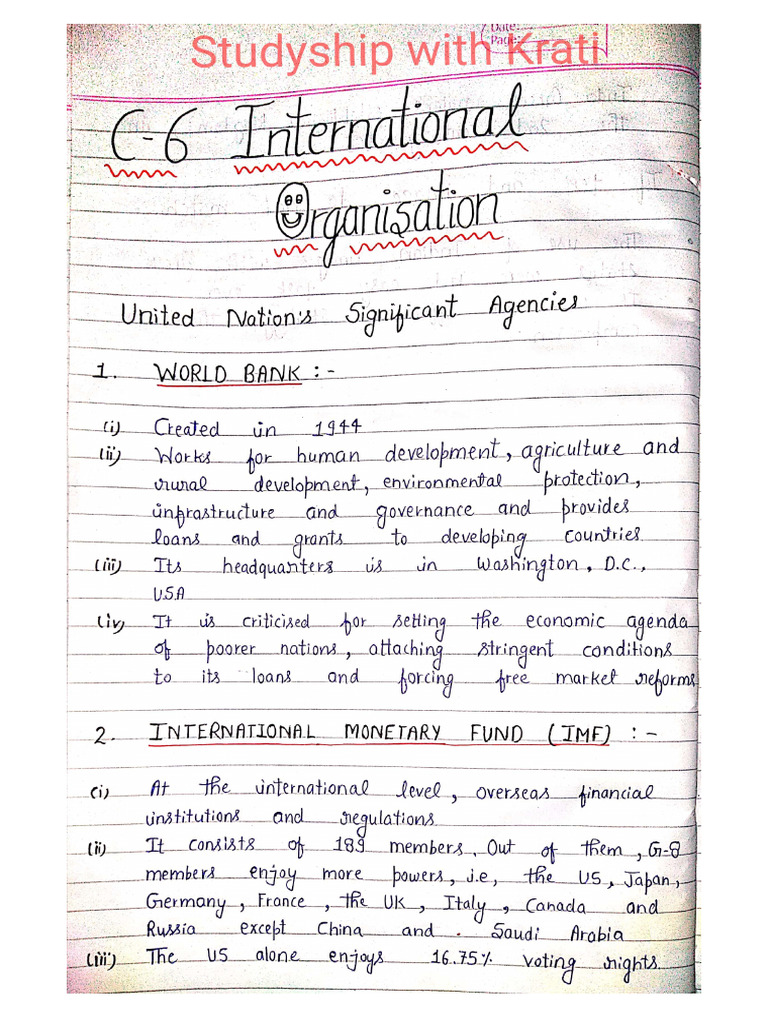 Date:
Page:
Studyship with Krati
C-6 International
Organisation
United Nation's Significant Agencies
1. WORLD BANK :-
(i) Created in 1944
(ii) Works for human development, agriculture and
rural development, environmental protection,
infrastructure and governance and provides
loans and grants to developing countries
(iii) Its headquarters is in Washington, D.C.,
USA
(iv) It is criticised for setting the economic agenda
of poorer nations, attaching stringent conditions
to its loans and forcing free market reforms
2. INTERNATIONAL MONETARY FUND (IMF) :-
(i) At the international level, overseas financial
institutions and regulations
(ii) It consists of 189 members. Out of them, G-8
members enjoy more powers, i.e, the US, Japan,
Germany, France, the UK, Italy, Canada and
Russia except China and Saudi Arabia
(iii) The US alone enjoys 16.75% voting rights